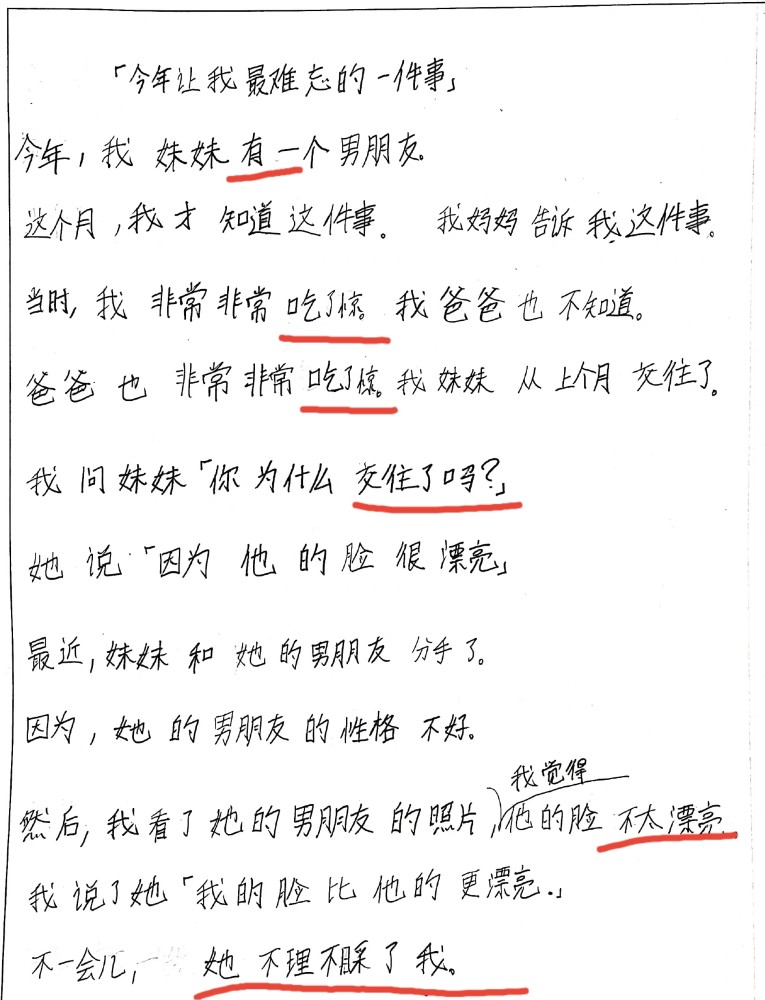 「今年让我最难忘的一件事」
今年,我妹妹有一个男朋友。
这个月,我才知道这件事。我妈妈告诉我这件事。
当时,我非常非常吃了惊。我爸爸也不知道。
爸爸也非常非常吃了惊。我妹妹从上个月交往了。
我问妹妹「你为什么交往了吗?」
她说「因为他的脸很漂亮」
最近,妹妹和她的男朋友分手了。
因为,她的男朋友的性格不好。
我觉得
然后,我看了她的男朋友的照片,他的脸不太漂亮。
我说了她「我的脸比他的更漂亮.」
不一会儿,她不理不睬了我。